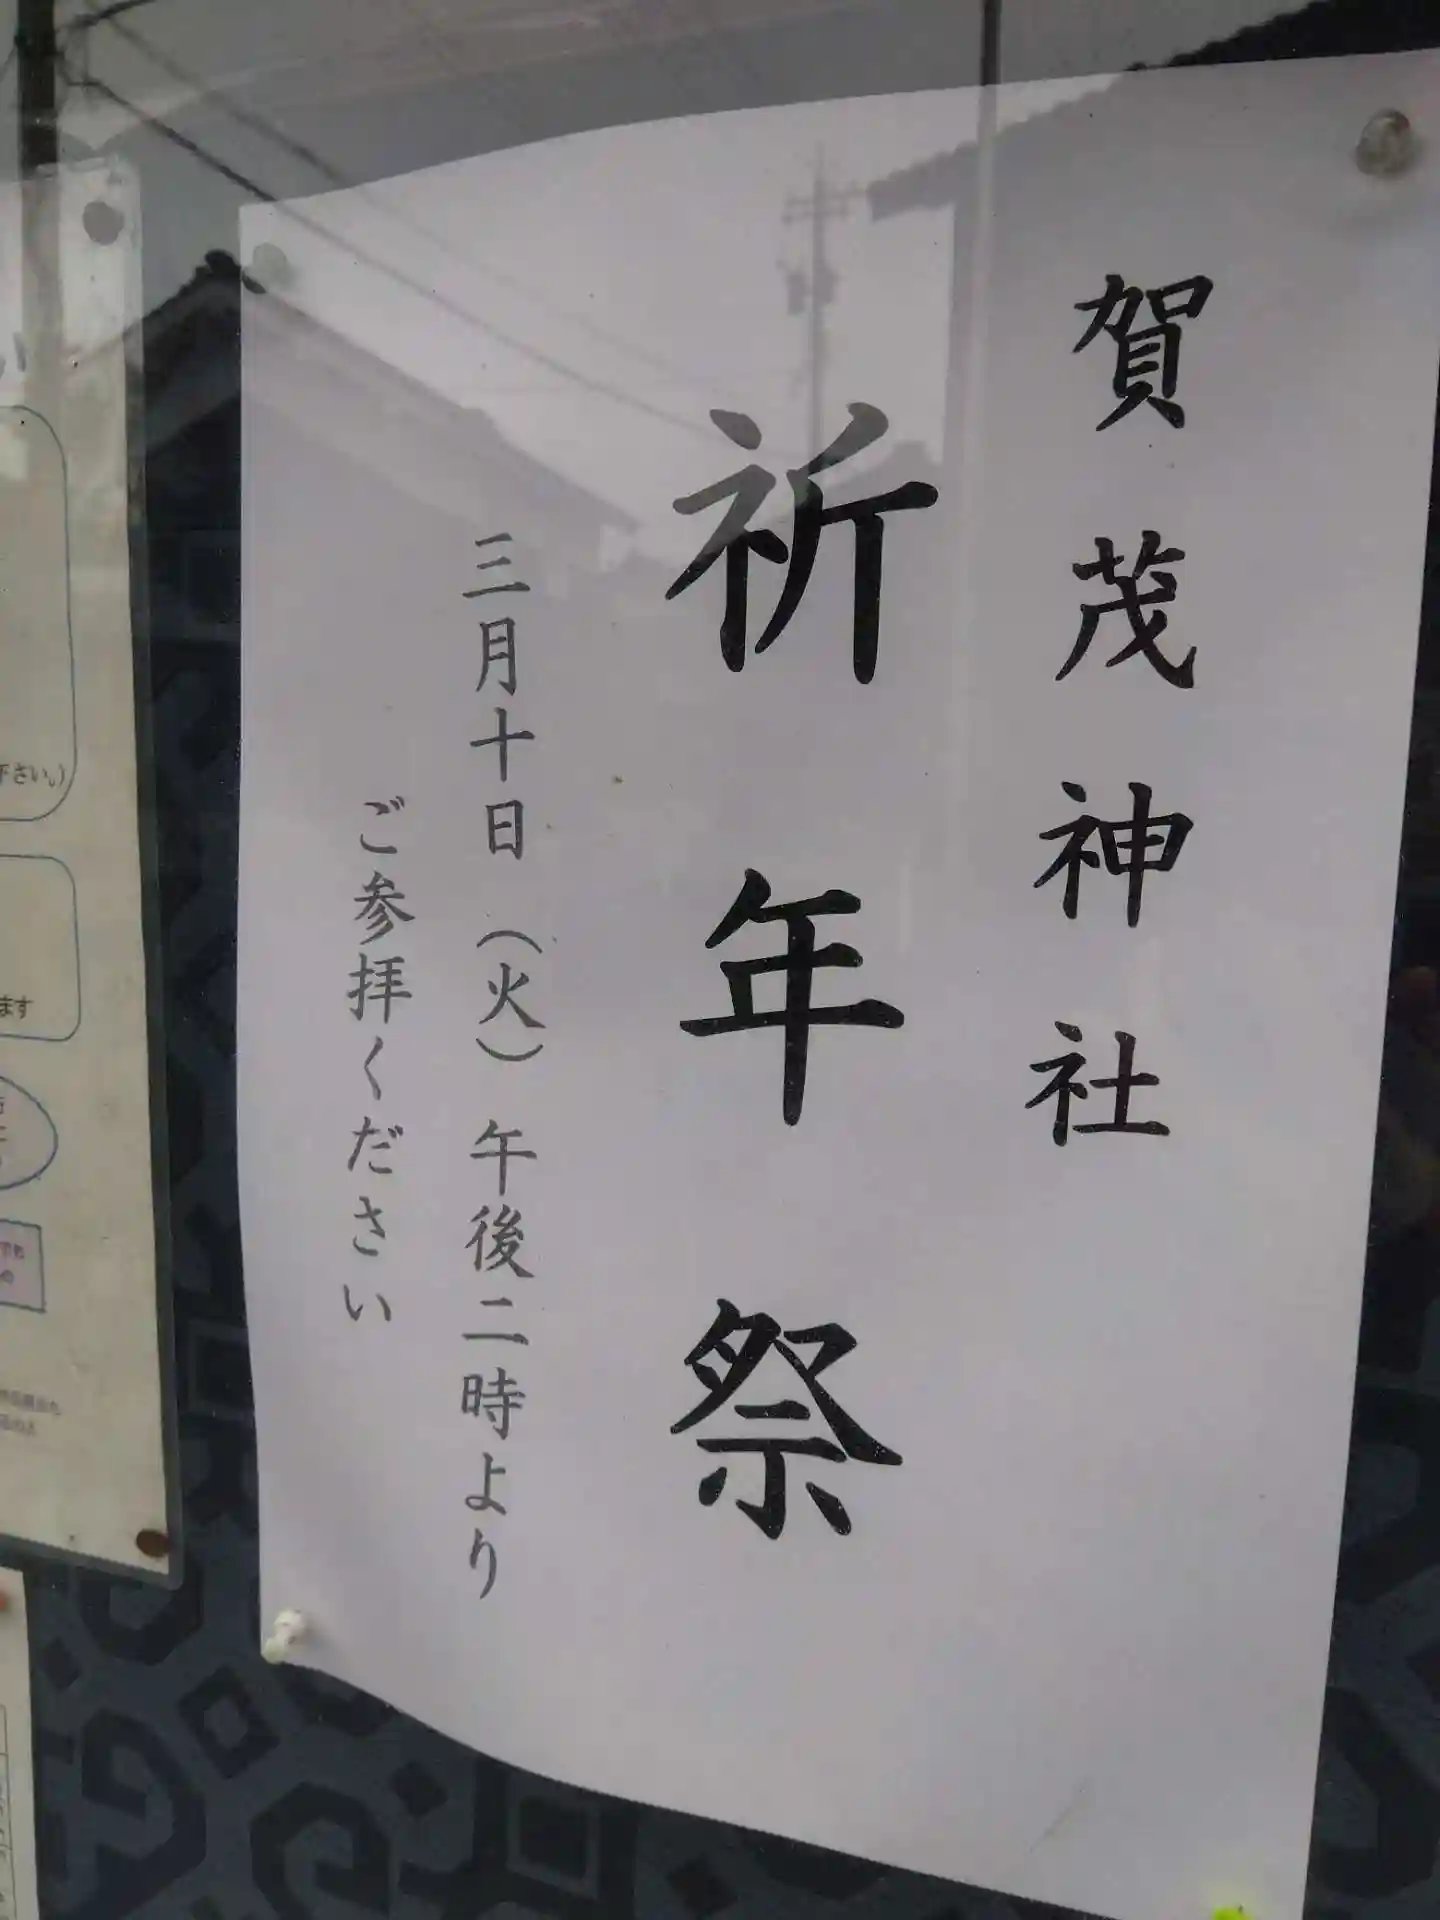 賀茂神社
祈年祭
三月十日（火）午後二時より
ご参拝ください
下さい。）
ます